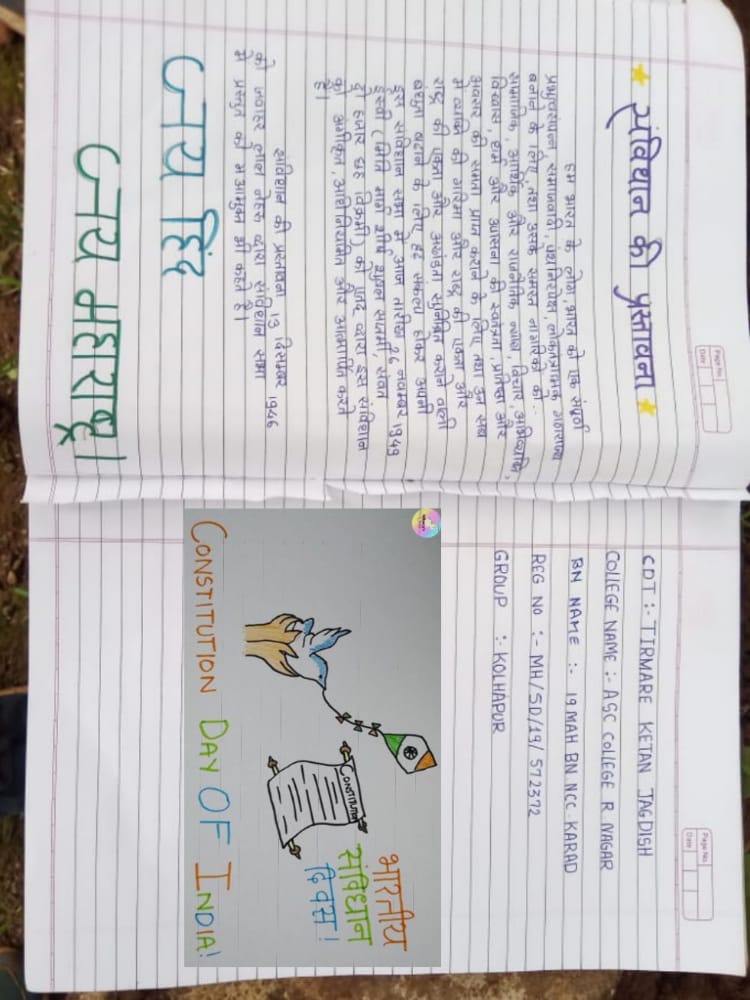 Page No.
Date
★ संविधान की प्रस्तावना ★
हम भारत के लोग, भारत को एक संपूर्ण
प्रभुत्वसंपन्न, समाजवादी, पंथनिरपेक्ष, लोकतंत्रात्मक गणराज्य
बनाने के लिए, तथा उसके समस्त नागरिकों को :-
सामाजिक, आर्थिक और राजनैतिक न्याय, विचार, अभिव्यक्ति,
विश्वास, धर्म और उपासना की स्वतंत्रता, प्रतिष्ठा और
अवसर की समता प्राप्त कराने के लिए तथा उन सब
में व्यक्ति की गरिमा और राष्ट्र की एकता और
राष्ट्र की एकता और अखंडता सुनिश्चित कराने वाली
बंधुता बढाने के लिए दृढ संकल्प होकर अपनी
इस संविधान सभा में आज तारीख 26 नवम्बर 1949
इस्वी (मिति मार्ग शीर्ष शुक्ल सप्तमी, संवत
दो हजार छह विक्रमी) को एतद द्वारा इस संविधान
को अंगीकृत, अधिनियमित और आत्मार्पित करते
है।
संविधान की प्रस्तावना 13 दिसम्बर 1946
को जवाहर लाल नेहरू द्वारा संविधान सभा
में प्रस्तुत की आमुख भी कहते है।
जय हिंद
जय महाराष्ट्र।
Page No.
Date
CDT :- TIRMARE KETAN JAGDISH
COLLEGE NAME :- ASC COLLEGE R NAGAR
BN NAME :- 19 MAH BN NCC KARAD
REG NO :- MH/SD/19/572372
GROUP :- KOLHAPUR
भारतीय
संविधान
दिवस!
CONSTITUTION
CONSTITUTION DAY OF INDIA!